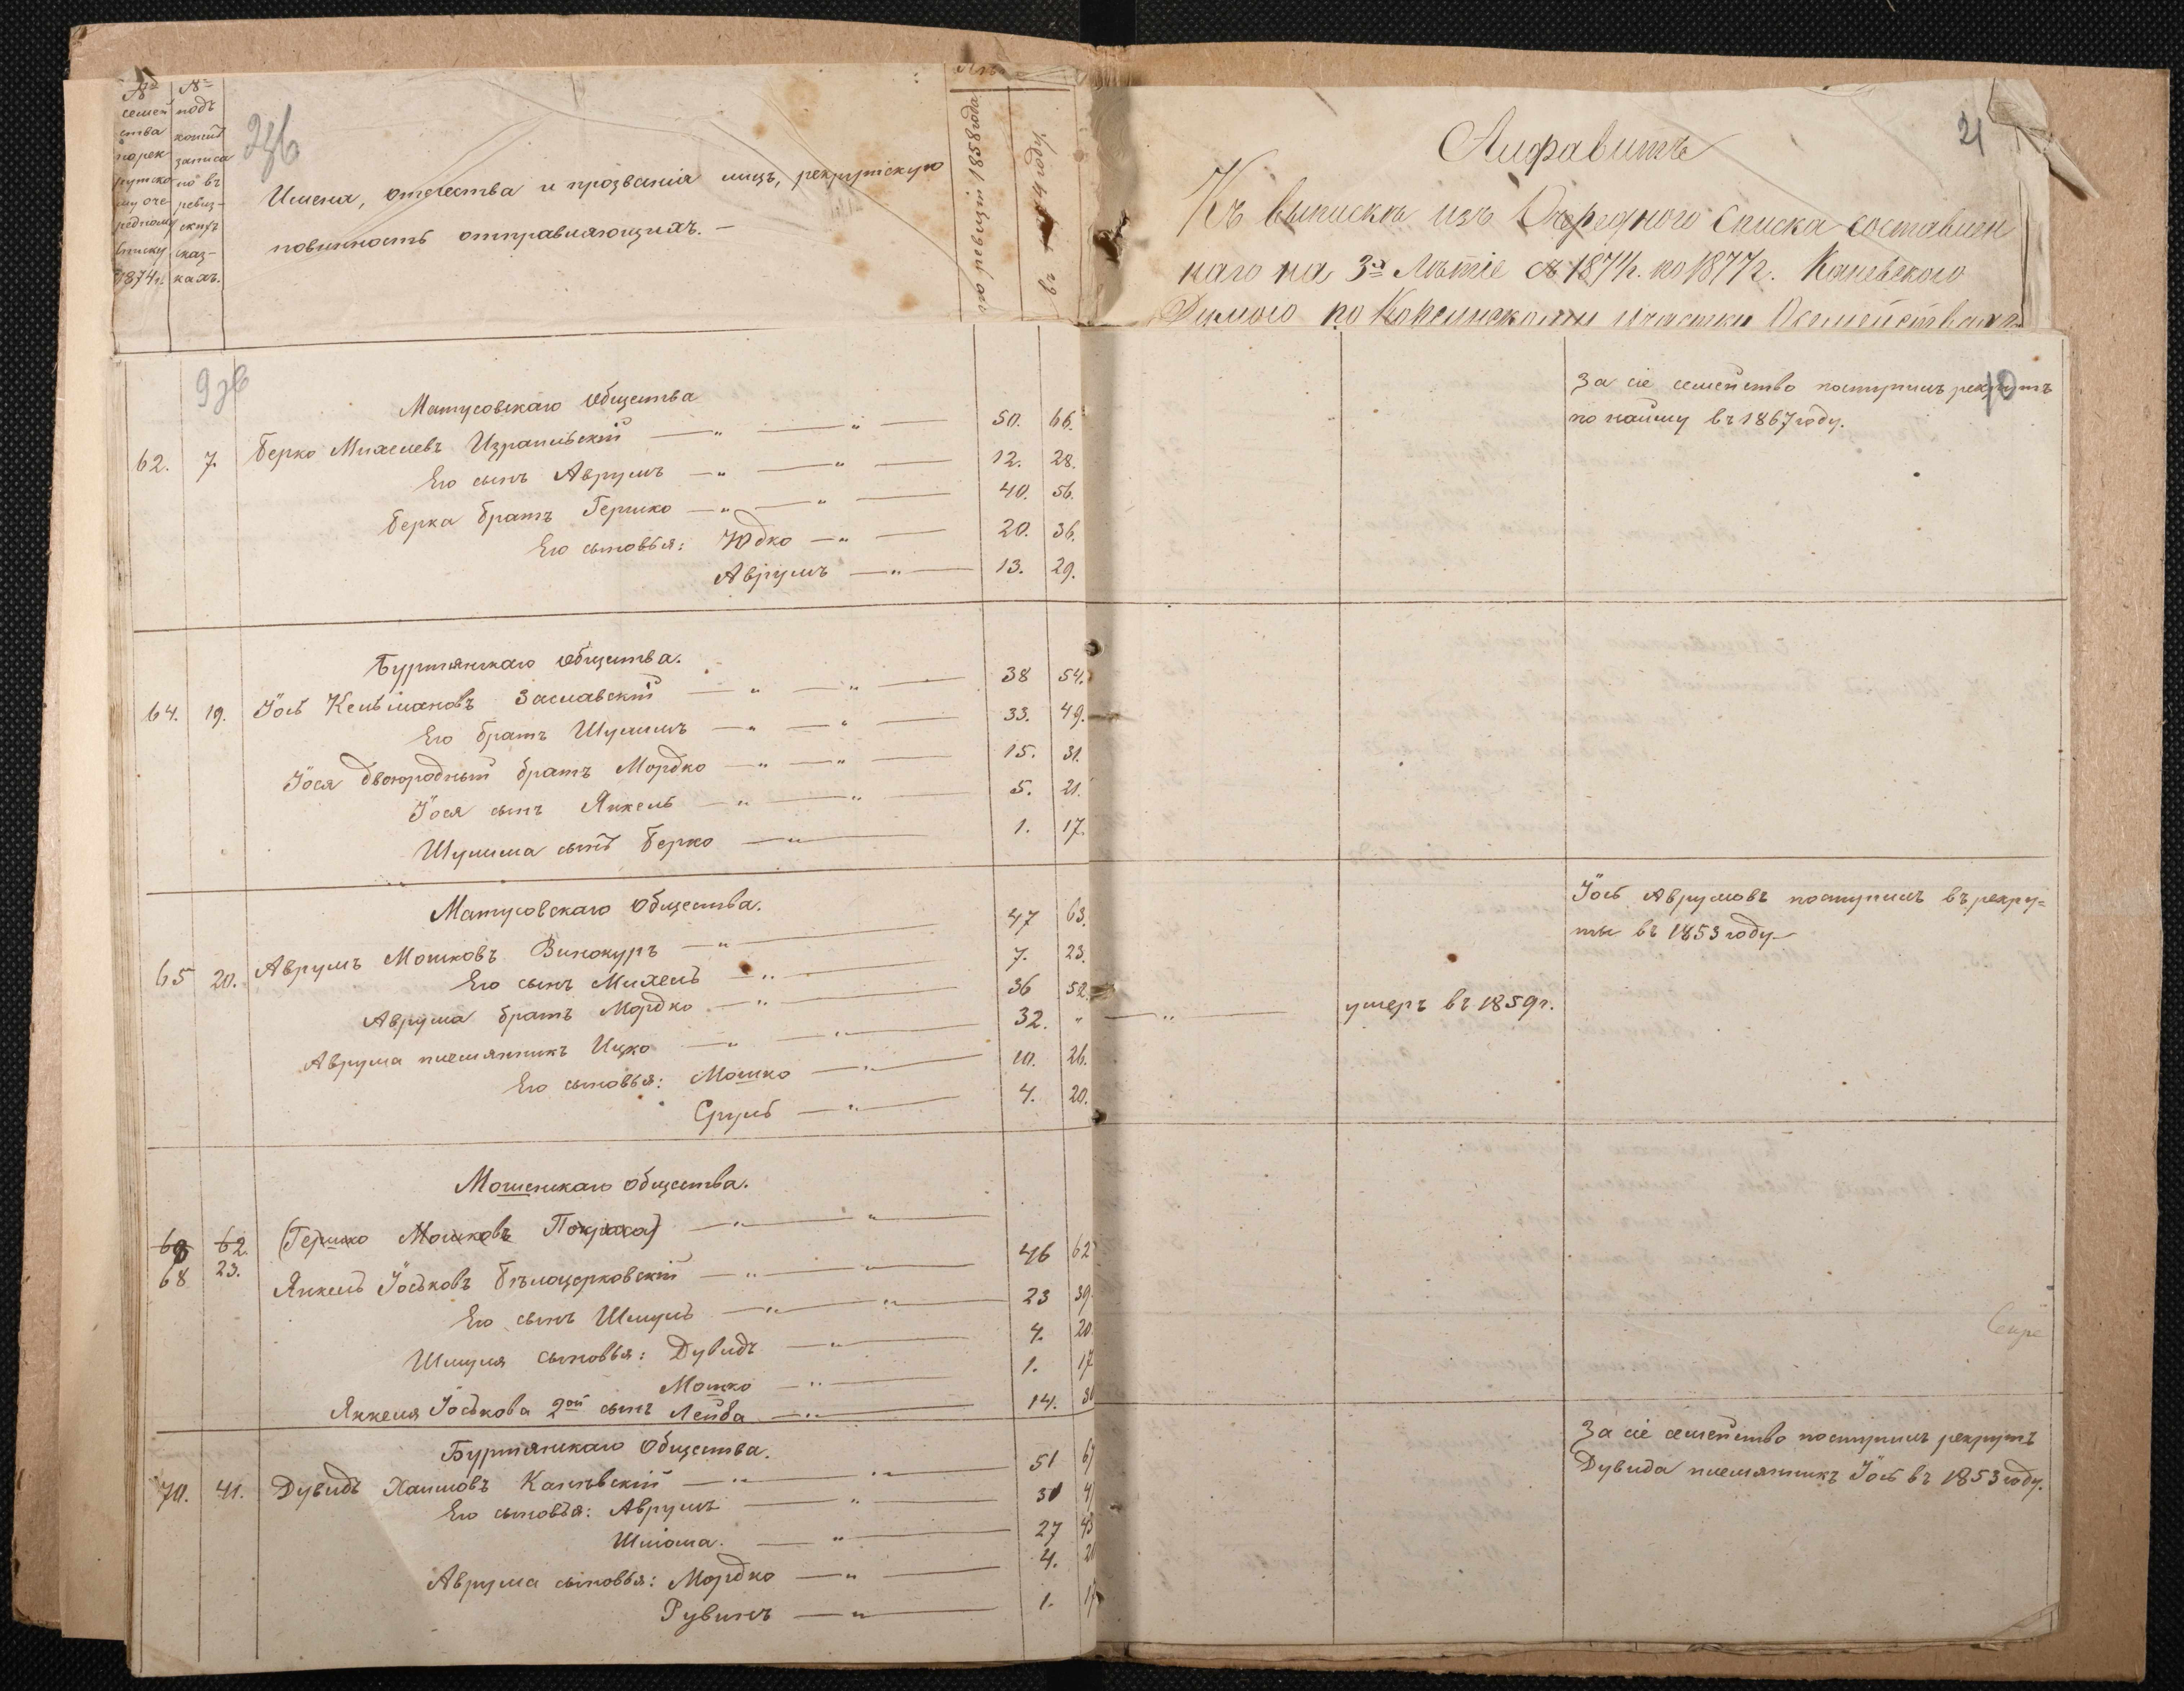 №
семей
ства
по рек
рутско
му оче
редному
списку
1874 г.
№
подъ
коимъ
записа
но въ
ревиз-
скихъ
сказ-
кахъ.
Имена, отчества и прозванія лицъ, рекрутскую
повинность отправляющихъ. —
по ревизіи 1858 года
въ 1874 году.
21
Алфавитъ
Къ выпискѣ изъ Очереднаго списка составлен
наго на 3е Лѣтіе съ 1874 г. по 1877 г. Каневского
по Корсунскому участку
9 зв
10
Матусовскаго Общества
62. 7. Берко Михелевъ Израильскій — " — " — 50. 66.
Его сынъ Аврумъ — " — " — 12. 28.
Берка братъ Гершко — " — " — 40. 56.
Его сыновья: Юдко — " — 20. 36.
Аврумъ — " — 13. 29.
За сіе семейство поступилъ рекрутъ
по найму въ 1867 году.
Буртянскаго Общества.
64. 19. Іось Кельмановъ Заславскій — " — " — 38 54.
Его братъ Шулимъ — " — " — 33. 49.
Іося двоюродный братъ Мордко — " — " — 15. 31.
Іося сынъ Янкель — " — " — 5. 21.
Шулима сынъ Берко — " — 1. 17.
Матусовскаго Общества.
65 20. Аврумъ Мошковъ Винокуръ — " — 47 63.
Его сынъ Михель — " — 7. 23.
Аврума братъ Мордко — " — 36 52.
Аврума племянникъ Ицко — " — " — 32. " — " — умеръ въ 1859 г.
Его сыновья: Мошко — " — 10. 26.
Сруль — " — 4. 20.
Іось Аврумовъ поступилъ въ рекру=
ты въ 1853 году
Мошенскаго Общества.
62. (Гершко Мошковъ Покраса) — " — " —
68 23. Янкель Іоськовъ Бѣлоцерковскій — " — " — 46 62
Его сынъ Шмуль — " — " — 23 39.
Шмуля сыновья: Дувидъ — " — 4. 20.
Мошко — " — 1. 17
Янкеля Іоськова 2ой сынъ Лейба — " — 14. 30
Буртянскаго Общества.
70. 41. Дувидъ Хаимовъ Каневскій — " — " — 51 67
Его сыновья: Аврумъ — " — 31 47
Шліома. — " — 27 43
Аврума сыновья: Мордко — " — 4. 20
Рувинъ — " — 1. 17
За сіе семейство поступилъ рекрутъ
Дувида племянникъ Іось въ 1853 году.